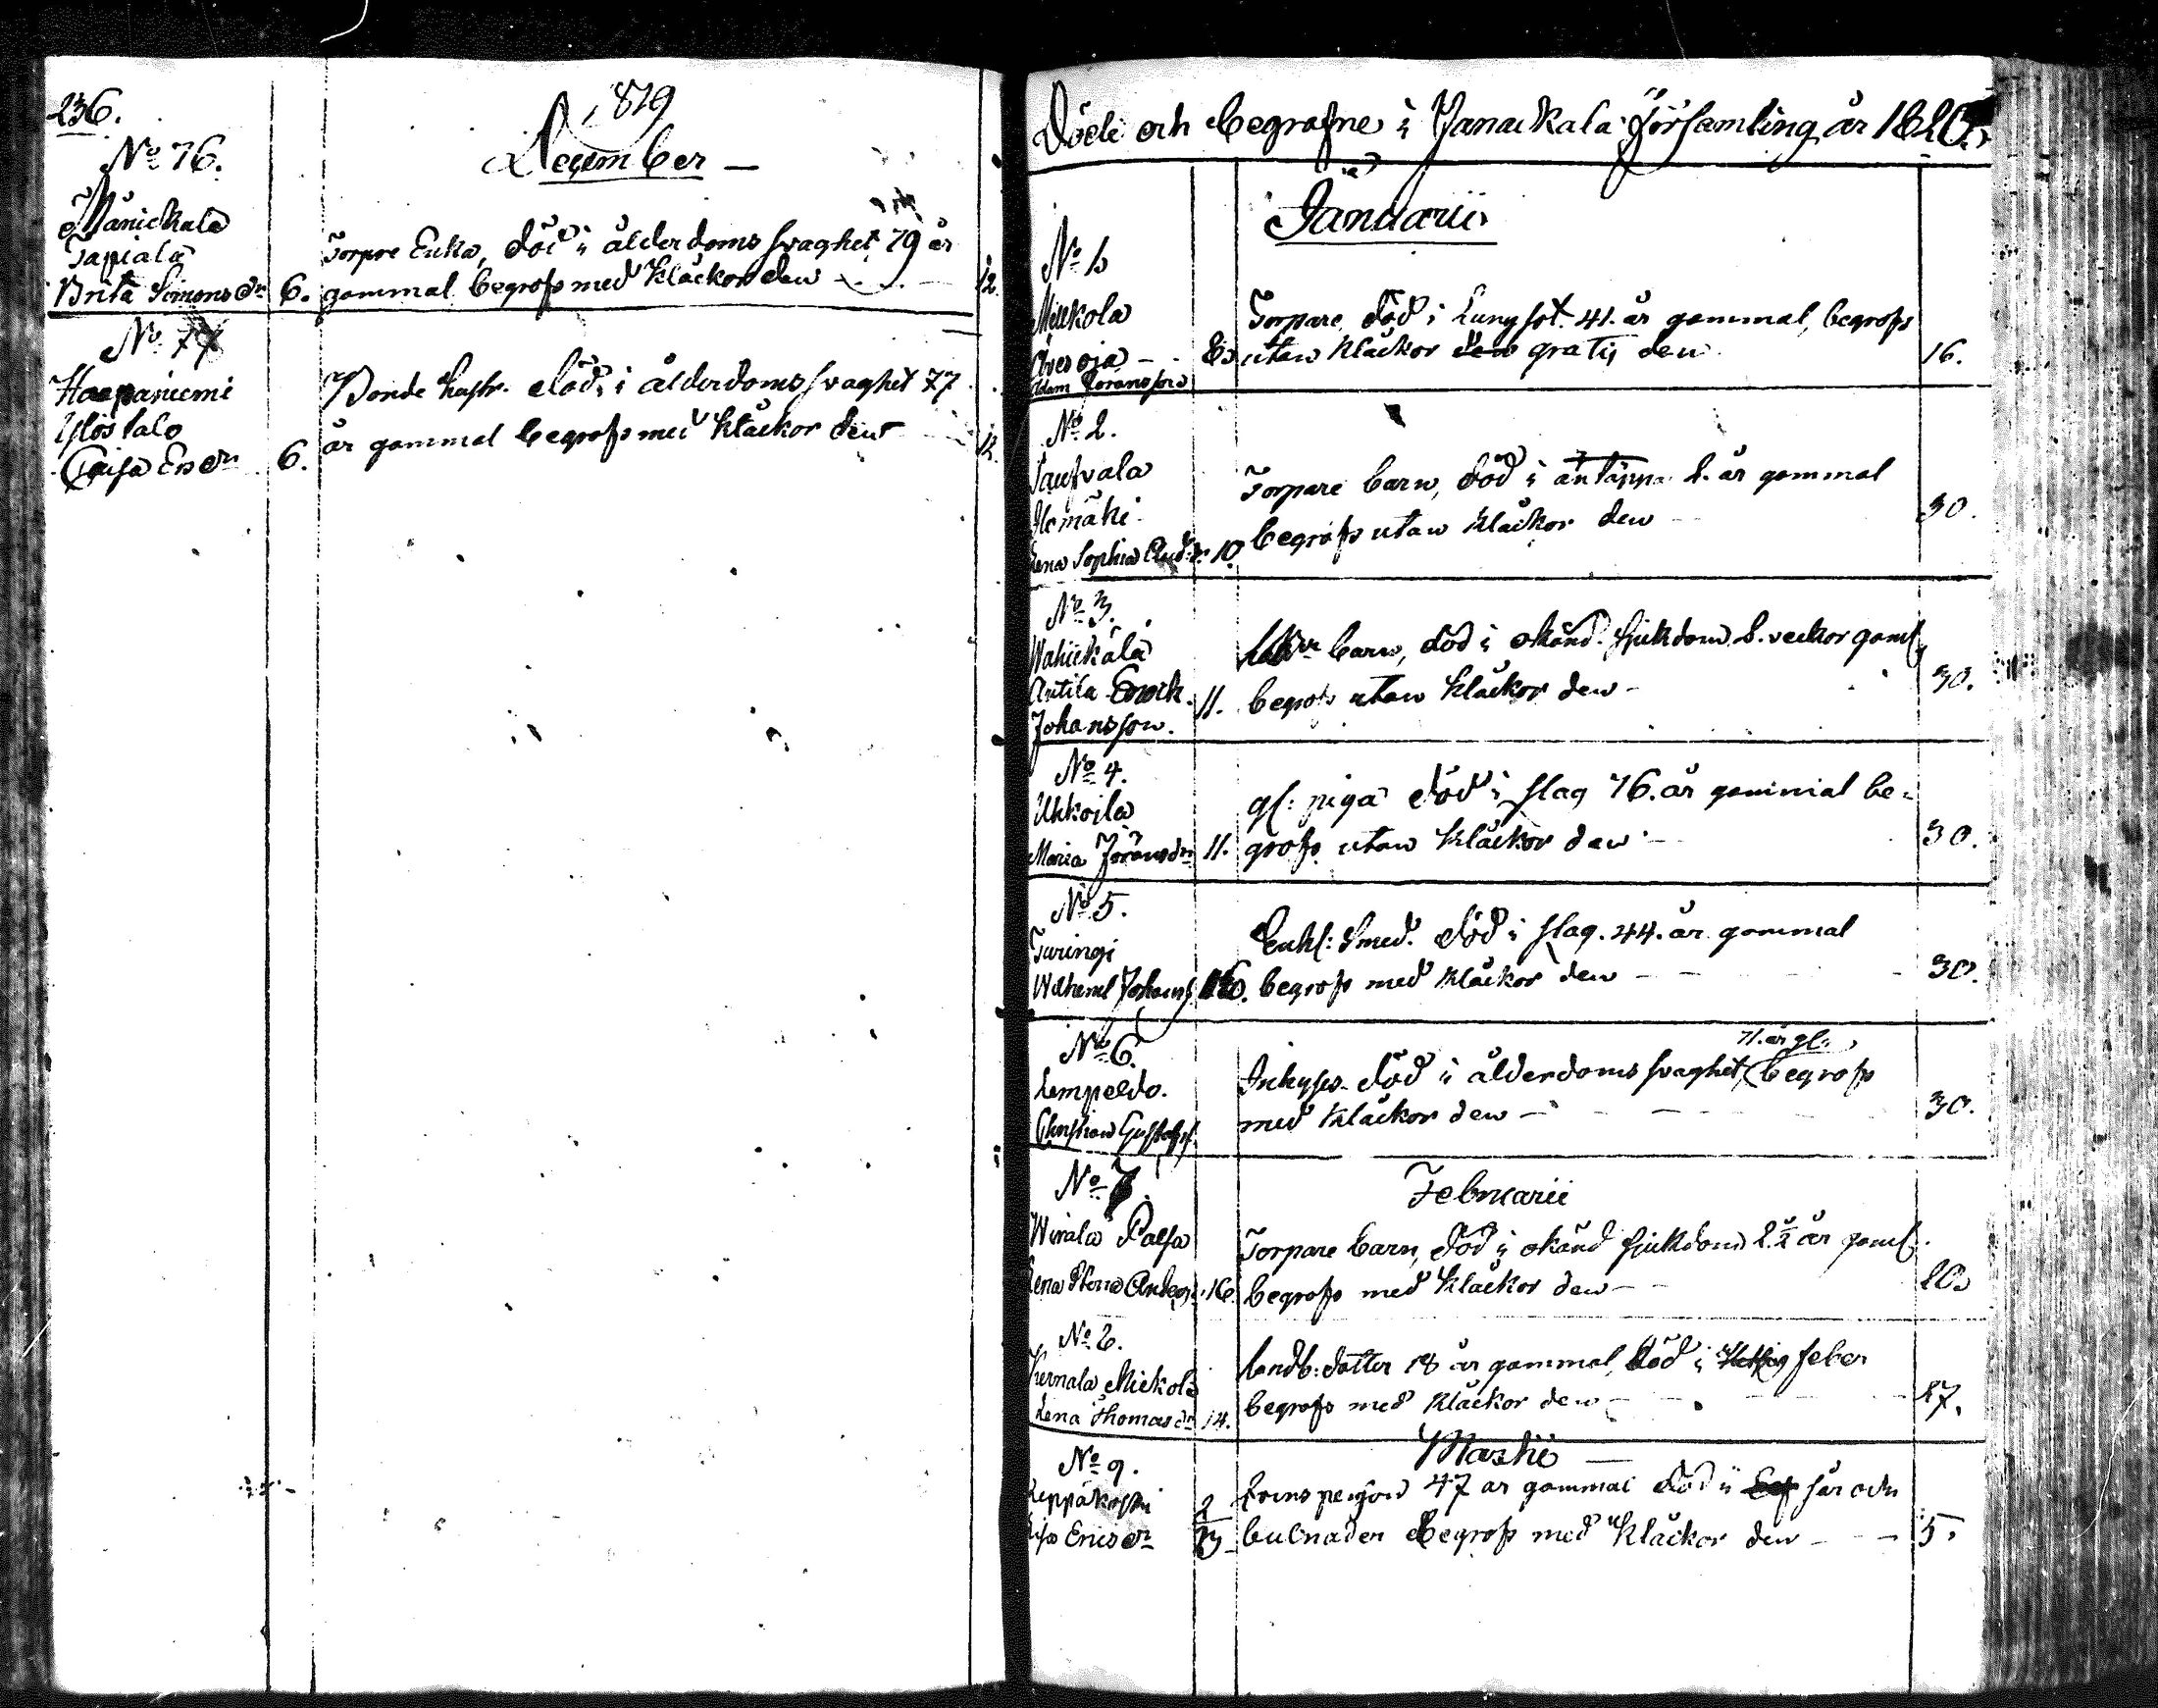 236.
1819
December
No 76.
Mänickala
Tapiala
Brita Simonsdr 6. Torpre Enka, död i ålderdoms svaghet 79 år
gammal begrofs med Kläckor den 12.
No 77
Haapaniemi
Ylöstalo
Caisa Ersdr 6. Bonde hustr. död i ålderdoms svaghet 77
år gammal begrofs med Kläckor den 12.
Döde och begrafne i Janackala Församling år 1820.
Januarii
No 1.
Mickola
Adam Göransson
Torpare, död i Lungsot. 41. år gammal, begrofs
utan Kläckor den gratis den 16.
No 2.
Ilemäki
Lena Sophia And:dr. 10.
Torpare barn, död i andtäppa 2. år gammal
begrofs utan Kläckor den 30.
No 3.
Wahickala
Antila Erich
Johansson. 11.
barn, död i okänd sjukdom 2. veckor gaml
begrofs utan Kläckor den 30.
No 4.
Uhkoila
Maria Jöransdr 11.
gl: piga död i slag 76. år gammal be-
grofs utan Kläckor den 30.
No 5.
Turingi
Wilhelm Johanss.
Enkl: Smed. död i slag. 44. år gammal
begrofs med Kläckor den 30.
No 6.
Lempeldo.
Christian Gustafss.
71. år gl.
Inhyses död i ålderdoms svaghet, begrofs
med Kläckor den 30.
No 7.
Februarii
Wirala Palsa
Lena Anders. 16.
Torpare barn, död i okänd sjukdom 2 1/2 år gaml.
begrofs med Kläckor den 20.
No 8.
Kernala Mickola
Lena Thomasdr 14.
Landb: dotter 18 år gammal, död i Hettsig feber
begrofs med Kläckor den 27.
Martii
No 9.
Leppäkoski
Ericsdr
47 år gammal död i sår och
bulnader begrofs med Kläckor den 5.